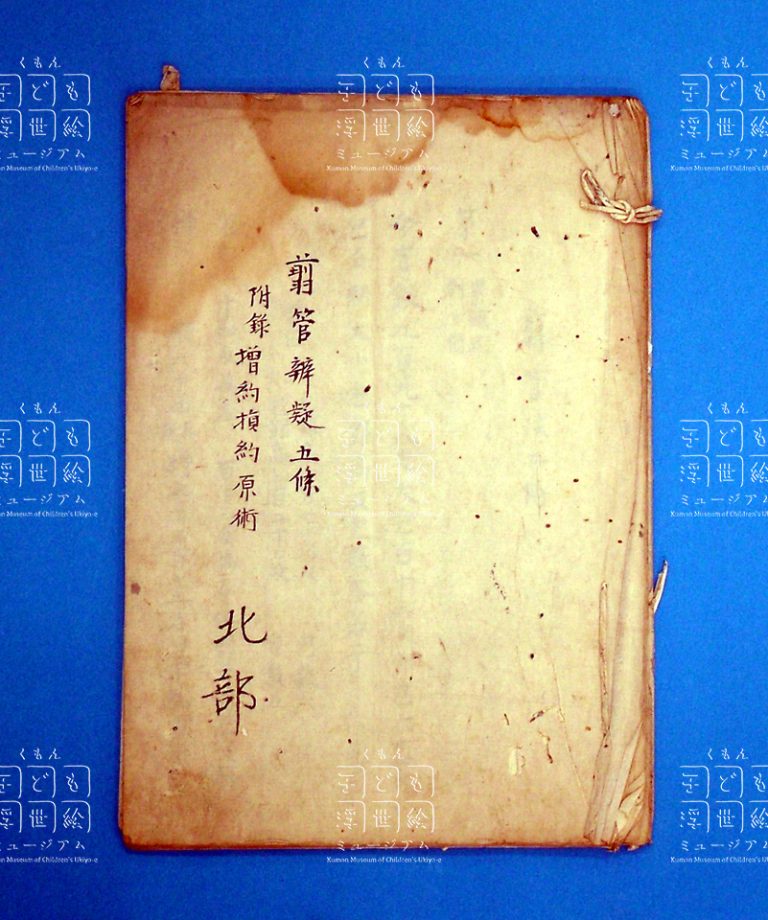 翦管辨疑五條
附錄增約損約原術
北部
くもん
子ども
浮世絵
ミュージアム
Kumon Museum of Children's Ukiyo-e